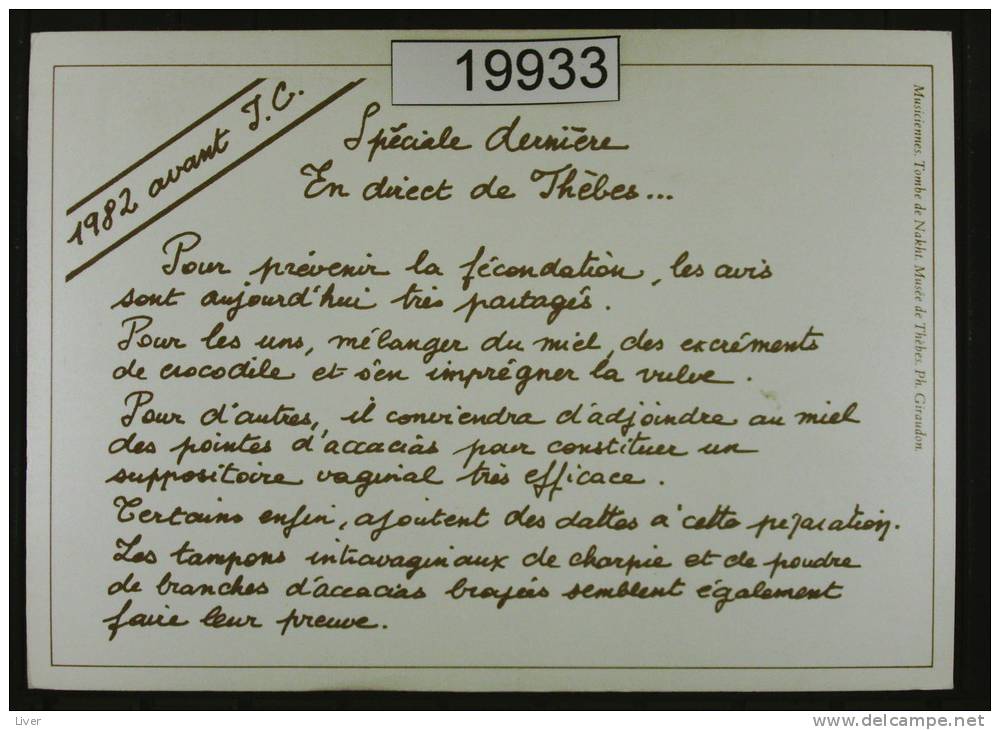 19933
1982 avant J.C.
Spéciale dernière
En direct de Thèbes...
Pour prévenir la fécondation, les avis
sont aujourd'hui très partagés.
Pour les uns, mélanger du miel, des excréments
de crocodile et s'en imprégner la vulve.
Pour d'autres, il conviendra d'adjoindre au miel
des pointes d'accacias pour constituer un
suppositoire vaginal très efficace.
Certains enfin, ajoutent des dattes à cette préparation.
Les tampons intravaginaux de charpie et de poudre
de branches d'accacias broyées semblent également
faire leur preuve.
Musiciennes. Tombe de Nakht. Musée de Thèbes. Ph. Giraudon.
Liver
www.delcampe.net